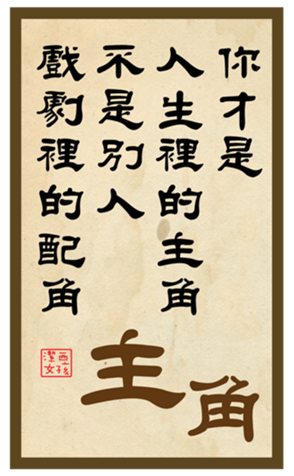 你才是
人生裡的主角
不是別人
戲劇裡的配角
主角